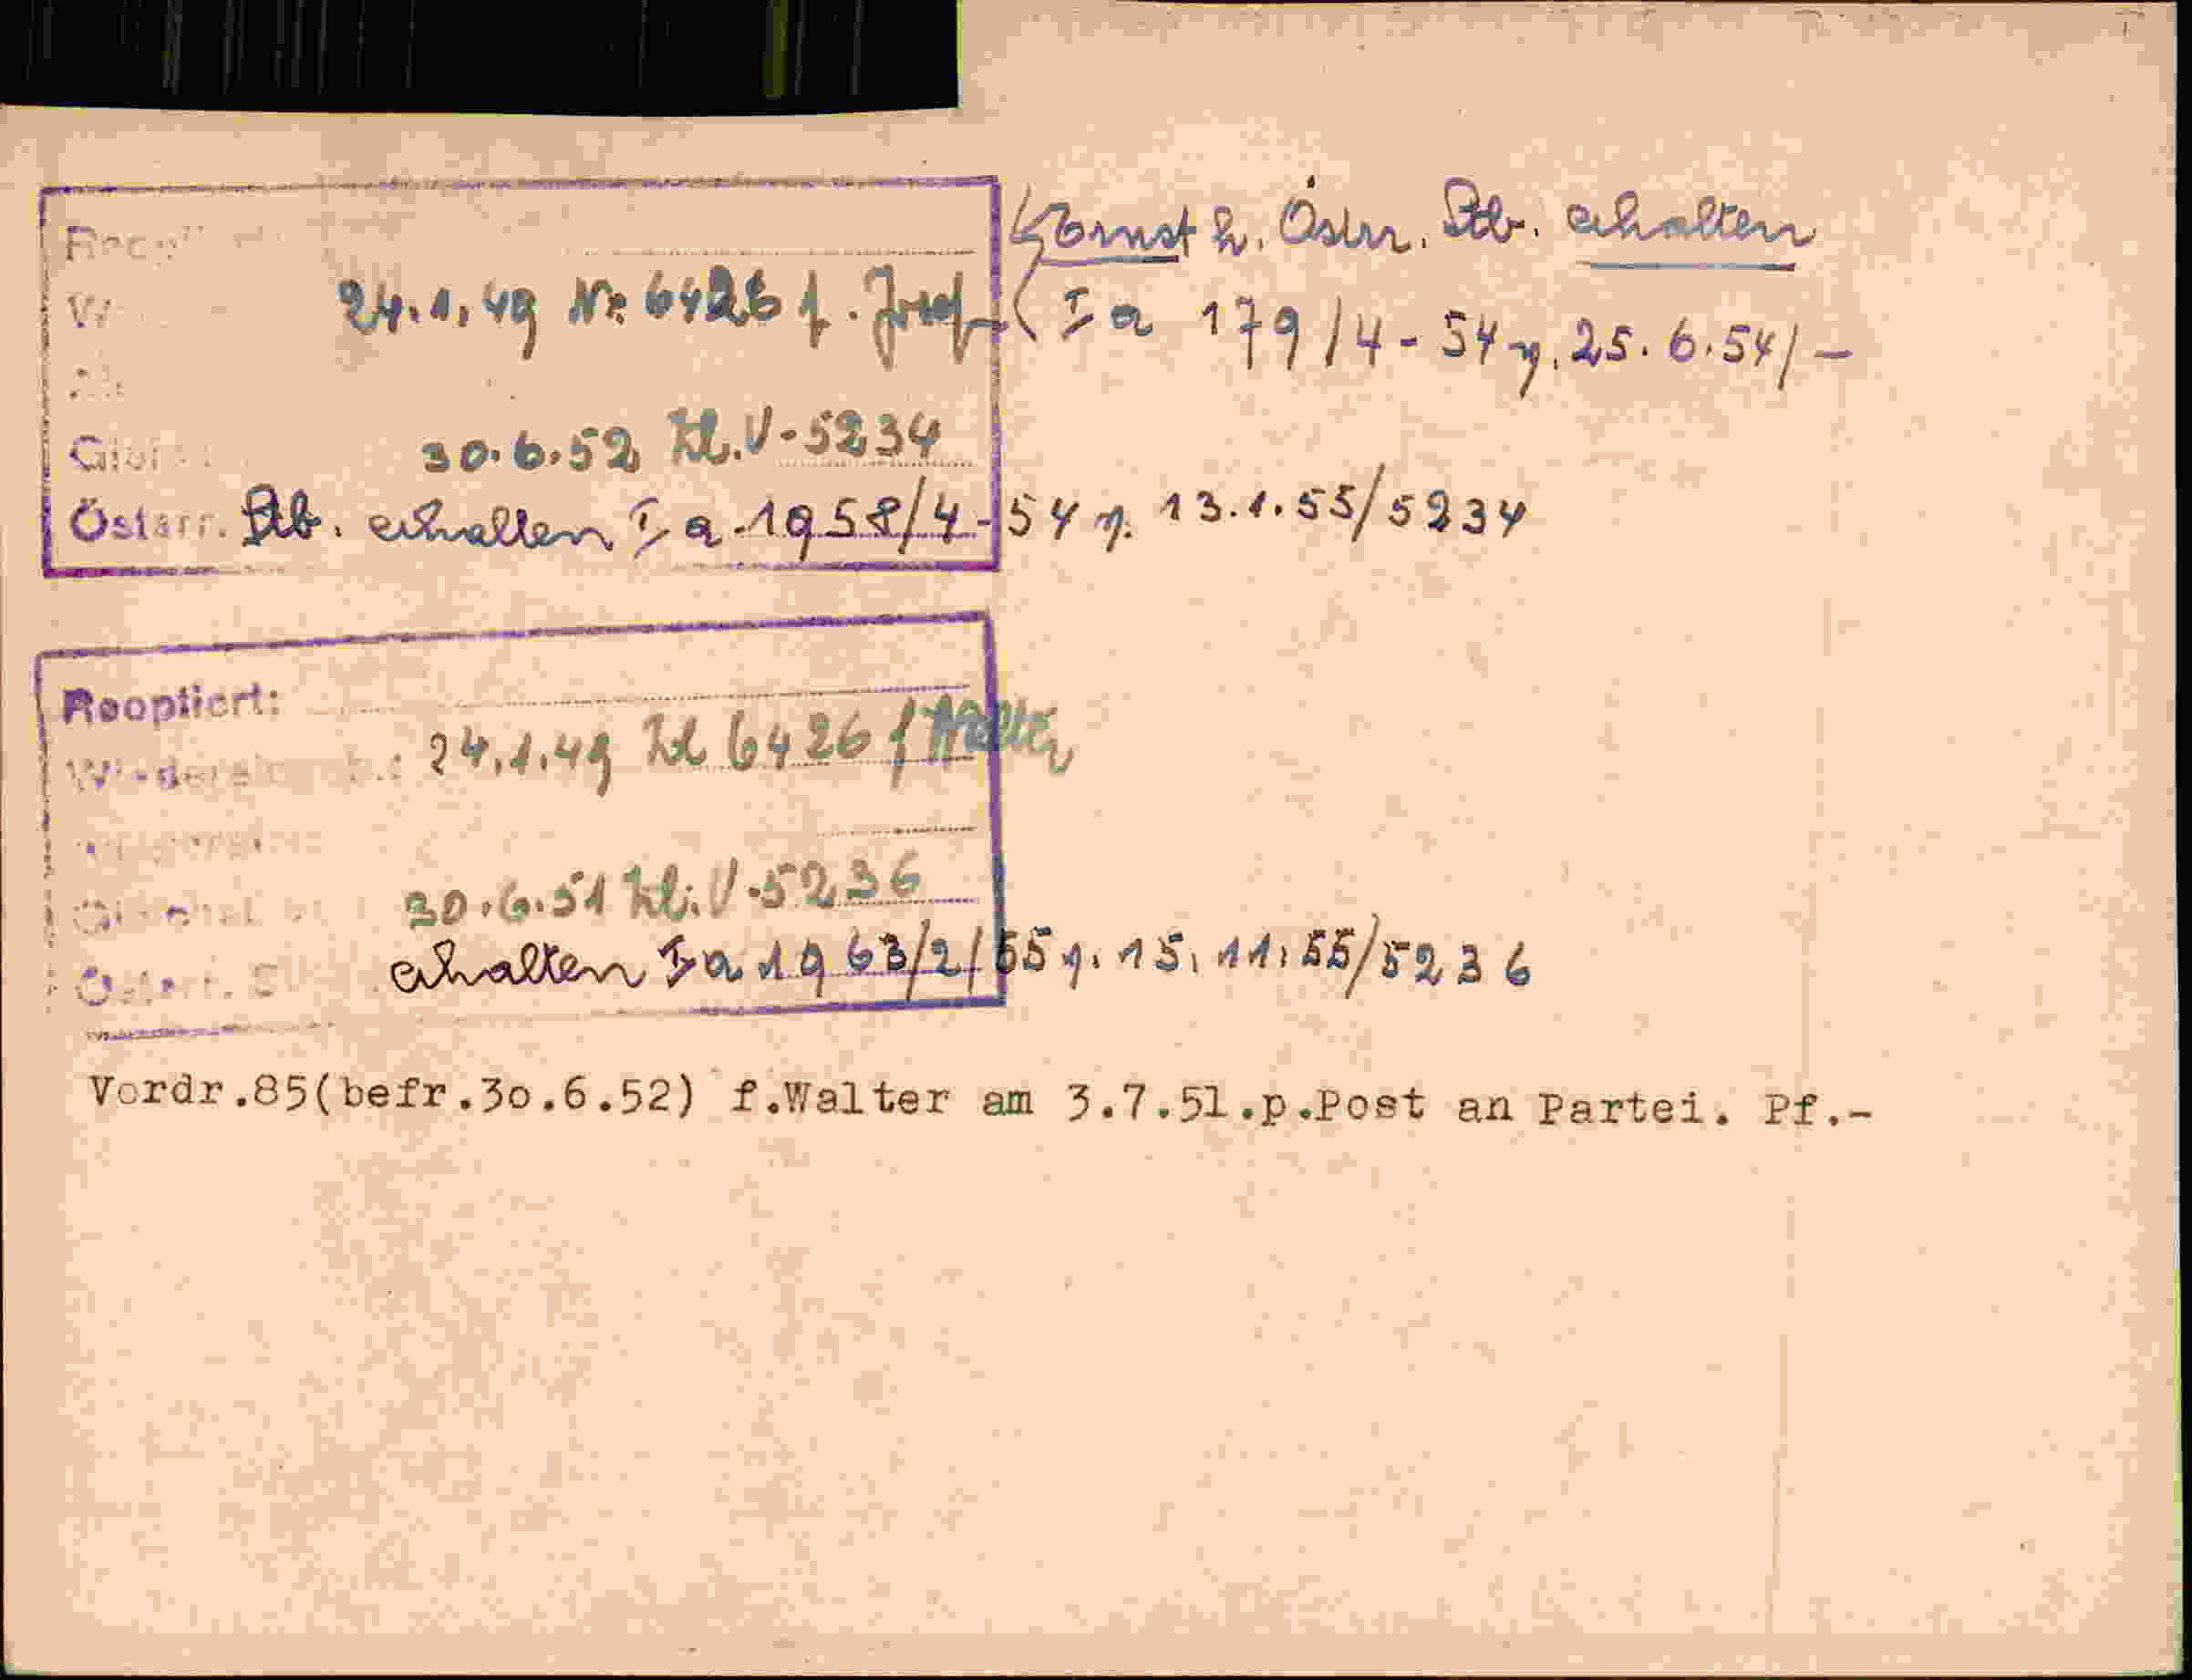 Ernst h. Östrr. Stb. erhalten
24.1.49 Nr. 6426 f. Josef (I a 179/4-54 v. 25.6.54/-
30.6.52 Zl. V-5234
Österr. Stb. erhalten I a-1958/4-54 v. 13.1.55/5234
Reoptiert:
24.1.49 Zl 6426 f Walter
30.6.51 Zl. V-5236
erhalten I a 1963/2/55 v. 15.11.55/5236
Vordr.85(befr.3o.6.52) f.Walter am 3.7.51.p.Post an Partei. Pf.-